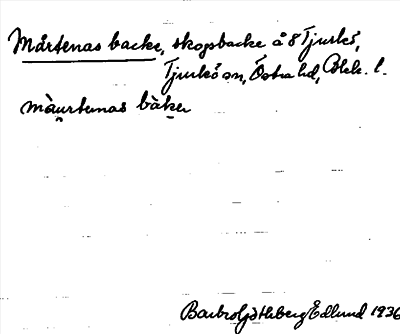 Mårtenas backe, skogsbacke å 8 Tjurkö,
Tjurkö sn, Östra hd, Blek. l.
màurtenas bàkes
Barbro Götheberg Edlund 1936